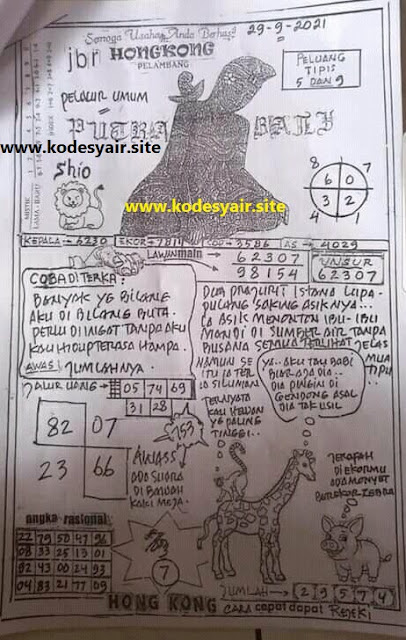 Semoga Usaha Anda Berhasil
29-9-2021
jbr HONGKONG
PELAMBANG
PELUANG
TIPIS
5 DAN 9
PELUUR UMUM
PUTRA BALI
www.kodesyair.site
Shio
www.kodesyair.site
8 7
6 0
3 2
4 1
KEPALA → 6230 EKOR → 7814 COP → 3586 AS → 4029
LAWAN main
62307
98154
UNSUR
62307
COBA DITERKA:
BANYAK YG BILANG
AKU DI BILANG BUTA.
PERLU DI INGAT TANPA AKU
KAU HIDUP TERASA HAMPA.
AWAS! JUMLAHNYA.
DUA PRAJURIT ISTANA LUPA
PULANG SAKING ASIKNYA...
IA ASIK MENONTON IBU-IBU
MANDI DI SUMBER AIR TANPA
BUSANA SEMUA TERLIHAT JELAS
NAMUN SEMUA TIPU
ITU IA TER
SILUMAN
JALUR UANG → 05 74 69
31 28
82 07
23 66
153
AWASS
ADA SUARA
DI BAWAH
KAKI MEJA.
TERNYATA
KAU HEWAN
YG PALING
TINGGI..
YA.. AKU TAU BABI
BIAR ADA DIA..
DIA PINGIN DI
GENDONG ASAL
DIA TAK USIL
DI EKORMU
ADA MONYET
BUKA EKOR ZEBRA
angka rasional
22 79 50 47 96
08 33 25 13 01
82 43 00 24 93
04 83 21 77 09
7
JUMLAH → 2 9 5 7 4
HONG KONG CARA cepat dapat REJEKI